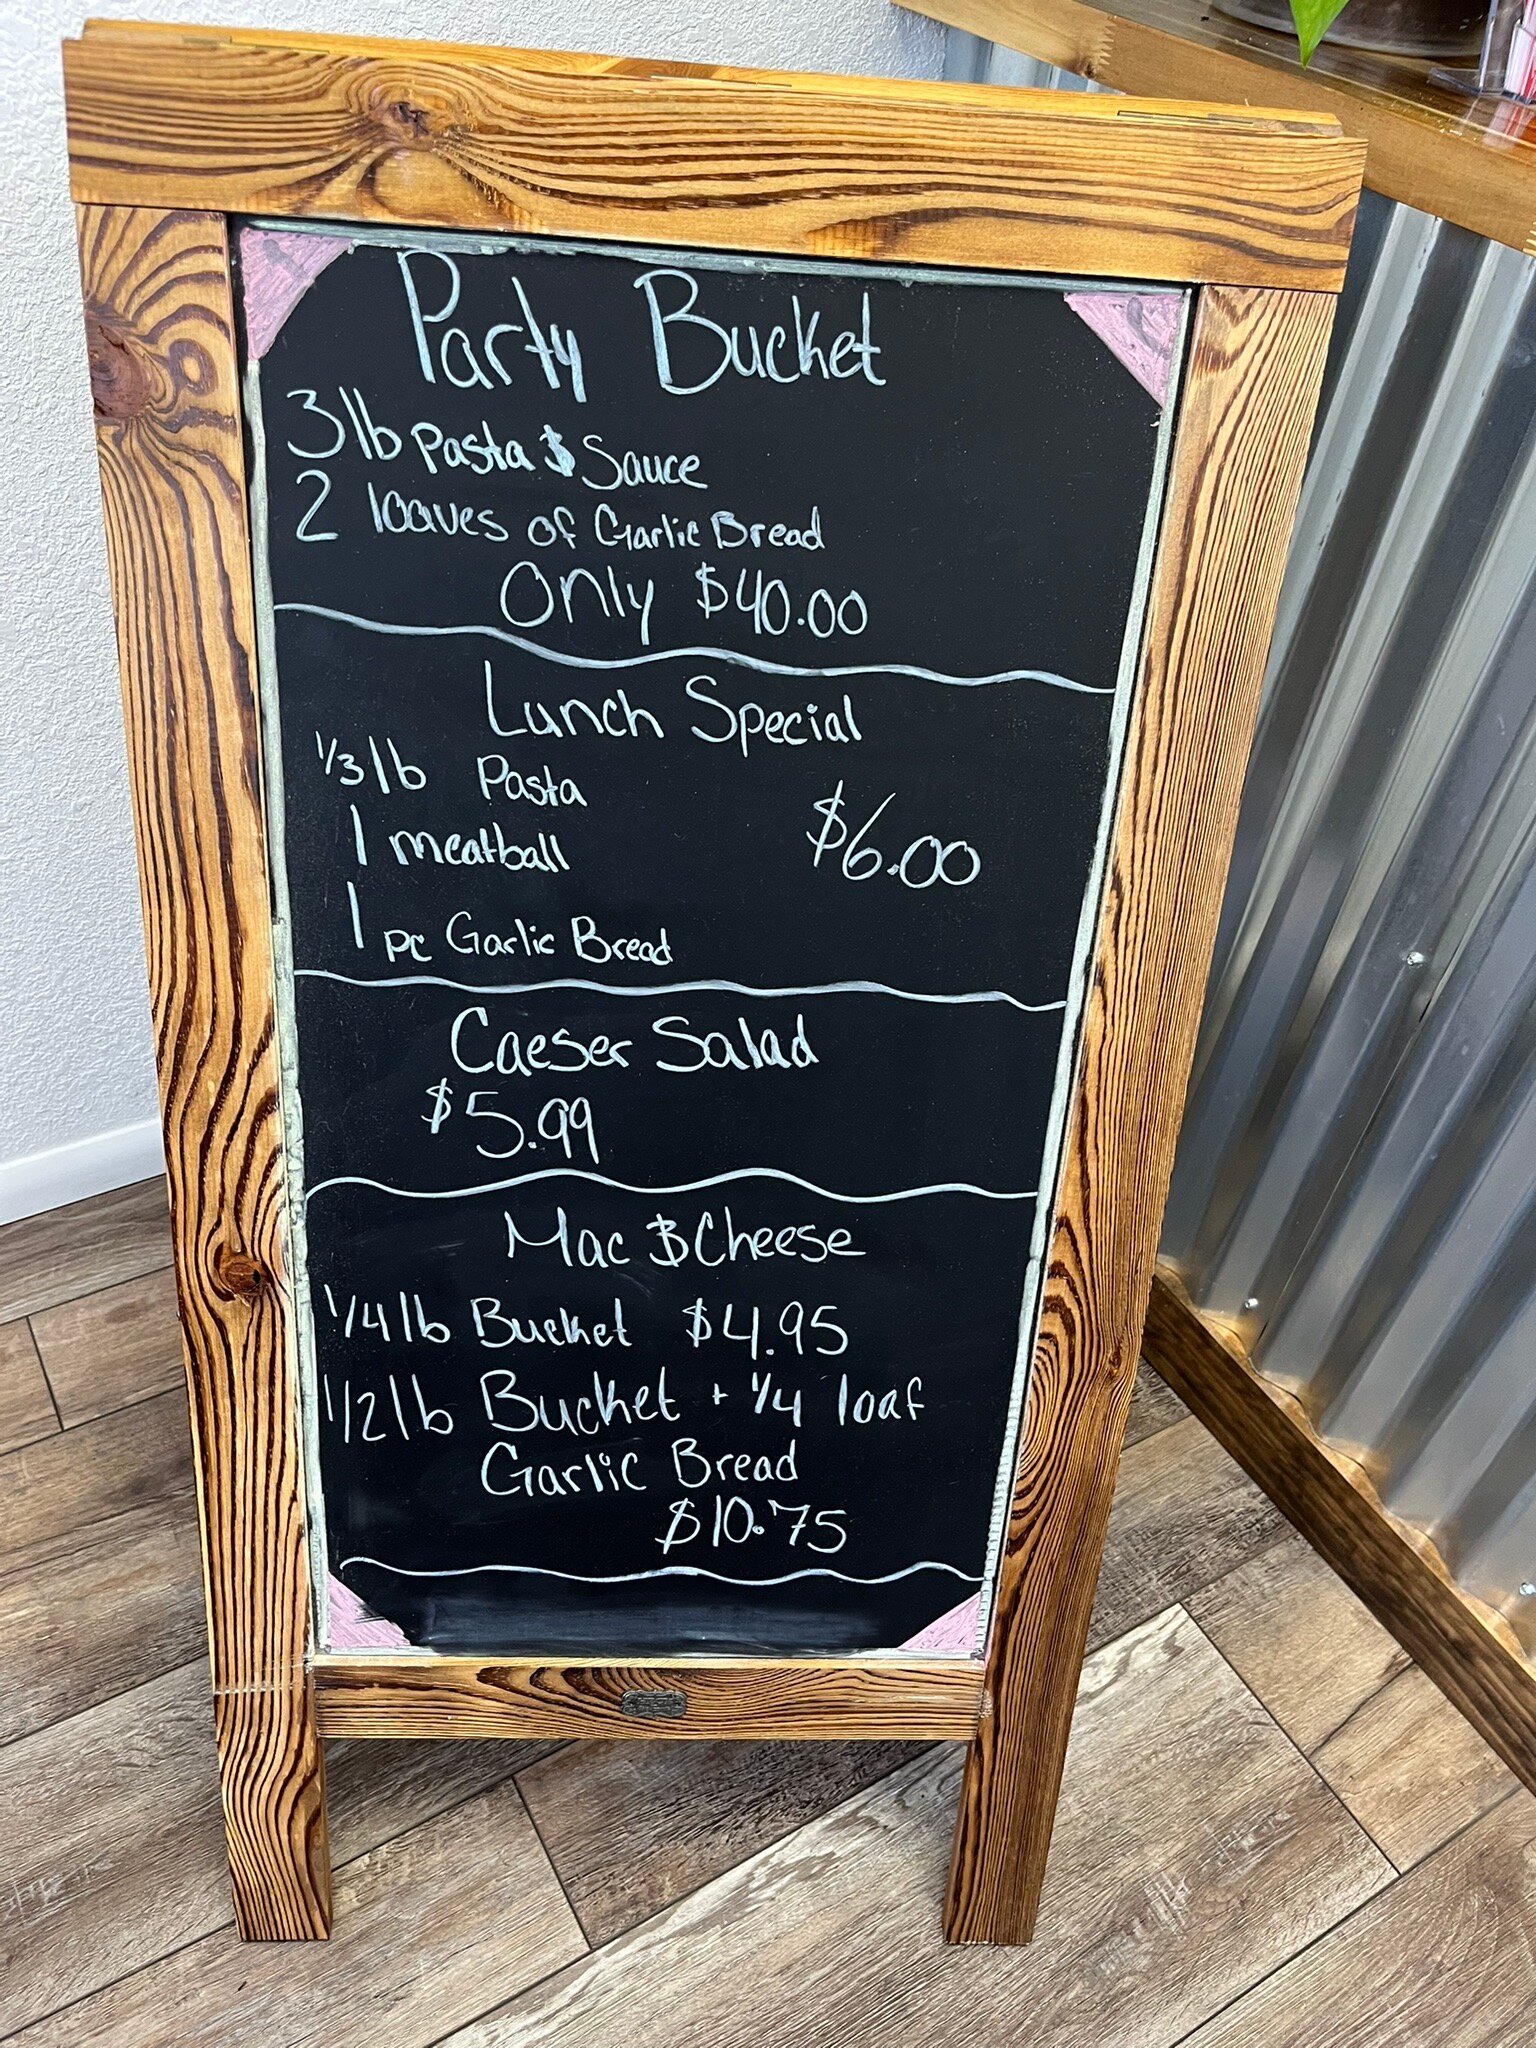 Party Bucket
3lb Pasta & Sauce
2 loaves of Garlic Bread
Only $40.00
Lunch Special
1/3 lb Pasta
$6.00
1 meatball
1 pc Garlic Bread
Caeser Salad
$5.99
Mac & Cheese
1/4 lb Bucket $4.95
1/2 lb Bucket + 1/4 loaf
Garlic Bread
$10.75